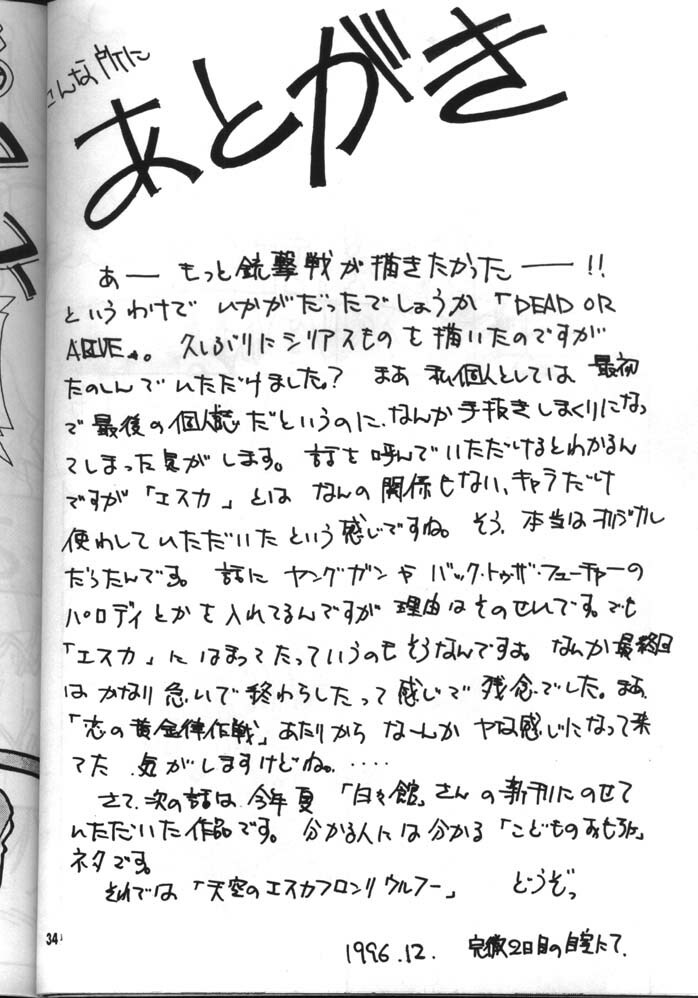 こんな所に
あとがき
あー もっと銃撃戦が描きたかったー!!
というわけで いかがだったでしょうか「DEAD OR
ALIVE」。 久しぶりにシリアスものを描いたのですが
たのしんでいただけました? まあ 私個人としては 最初
で最後の個人誌だというのに、なんか手抜きしまくりになっ
てしまった気がします。 話を呼んでいただけるとわかるん
ですが「エスカ」とは なんの関係もない、キャラだけ
使わしていただいたという感じですね。 そう、本当はオリジナル
だったんです。 話に ヤングガンや バック・トゥ・ザ・フューチャーの
パロディとかを入れてるんですが 理由はそのせいです。でも
「エスカ」にはまってたっていうのもそうなんですよ。なんか最終回
はかなり急いで終わらしたって感じで 残念でした。まあ、
「恋の黄金律作戦」あたりから なーんか ヤな感じになって来
てた 気がしますけどね。・・・・
さて、次の話は、今年夏 「白々館」さんの新刊にのせて
いただいた作品です。 分かる人には分かる「こどものおもちゃ」
ネタです。
それでは「天空のエスカフロンリウルフー」 どうぞっ
34
1996.12. 完徹2日目の自室にて.